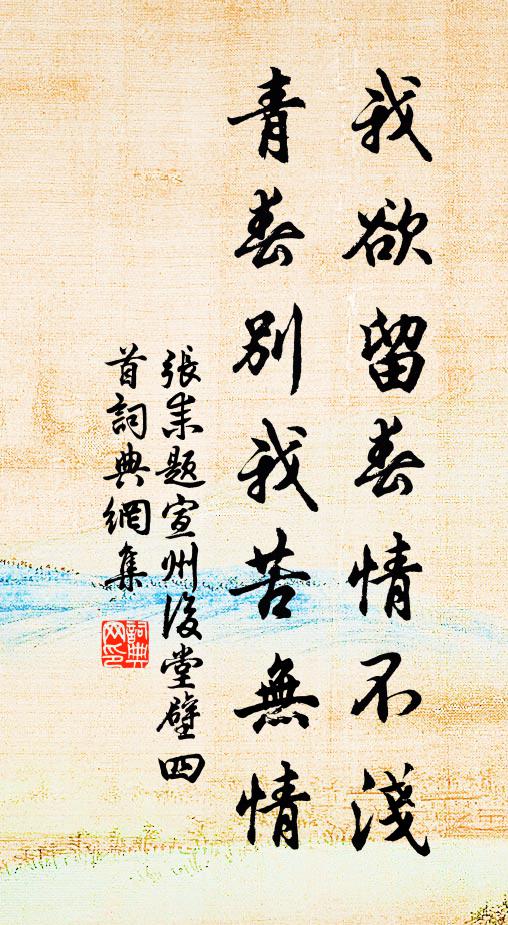 我欲留春情不淺
青春別我苦無情
張耒題宣州後堂壁四
首詞典網集
詞典
网印